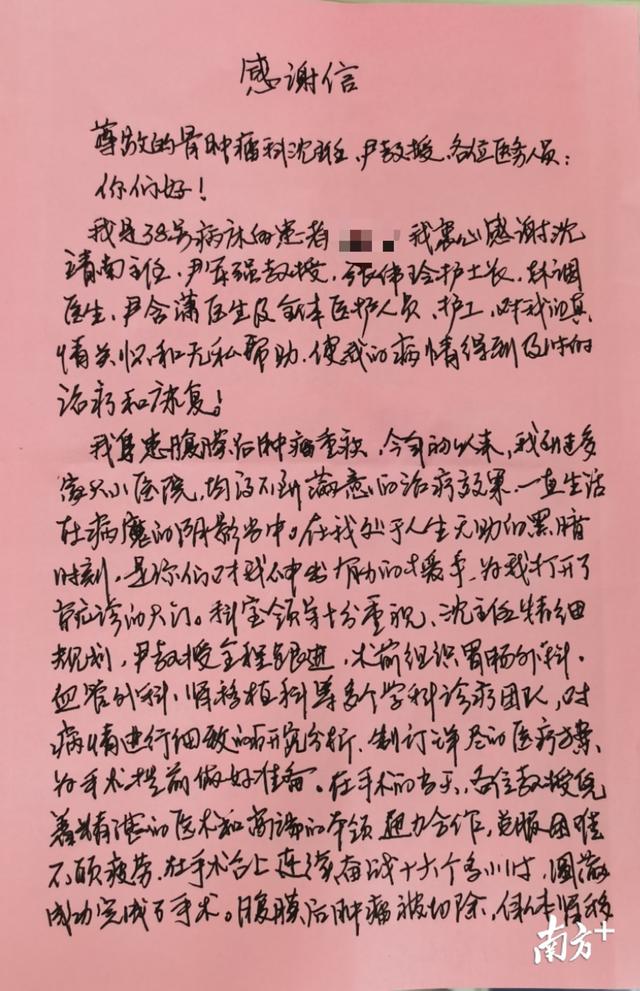 感谢信
尊敬的骨肿瘤科沈主任、尹教授、各位医务人员：
你们好！
我是38号病床的患者 我衷心感谢沈
靖南主任、尹军强教授、张伟玲护士长、林调
医生、尹含潇医生及全体医护人员、护工，对我的真
情关怀和无私帮助，使我的病情得到及时的
治疗和康复！
我身患腹膜后肿瘤重疾，今年初以来，我到过多
家大小医院，均得不到满意的治疗效果，一直生活
在病魔的阴影当中。在我处于人生无助的黑暗
时刻，是你们对我伸出有力的援手，为我打开了
有症诊的大门。科室领导十分重视、沈主任精细
规划，尹教授全程跟进，术前组织胃肠外科、
血管外科、肾移植科等多个学科诊疗团队，对
病情进行细致的研究分析，制订详尽的医疗方案，
为手术提前做好准备。在手术的当天，各位教授凭
着精湛的医术和高端的本领通力合作，克服困难
不顾疲劳，在手术台上连续奋战十六个多小时，圆满
成功完成了手术。腹膜后肿瘤被切除，体肾移
南方+